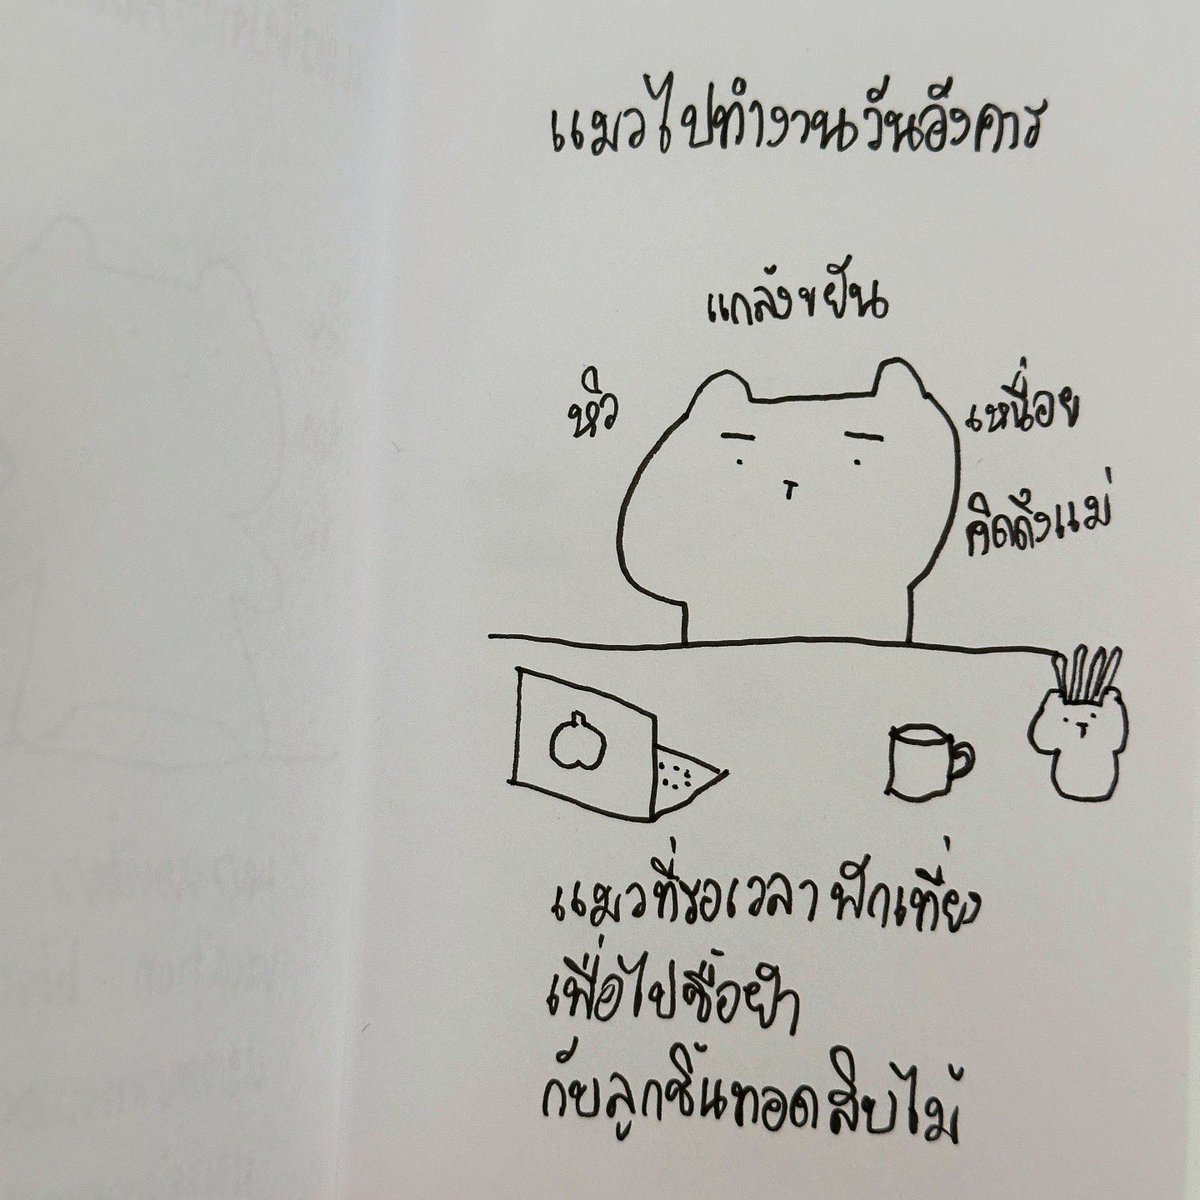 แมวไปทำงานวันอังคาร
แกล้งขยัน
หิว
เหนื่อย
คิดถึงแม่
แมวที่รอเวลาพักเที่ยง
เพื่อไปซื้อยำ
กับลูกชิ้นทอดสิบไม้